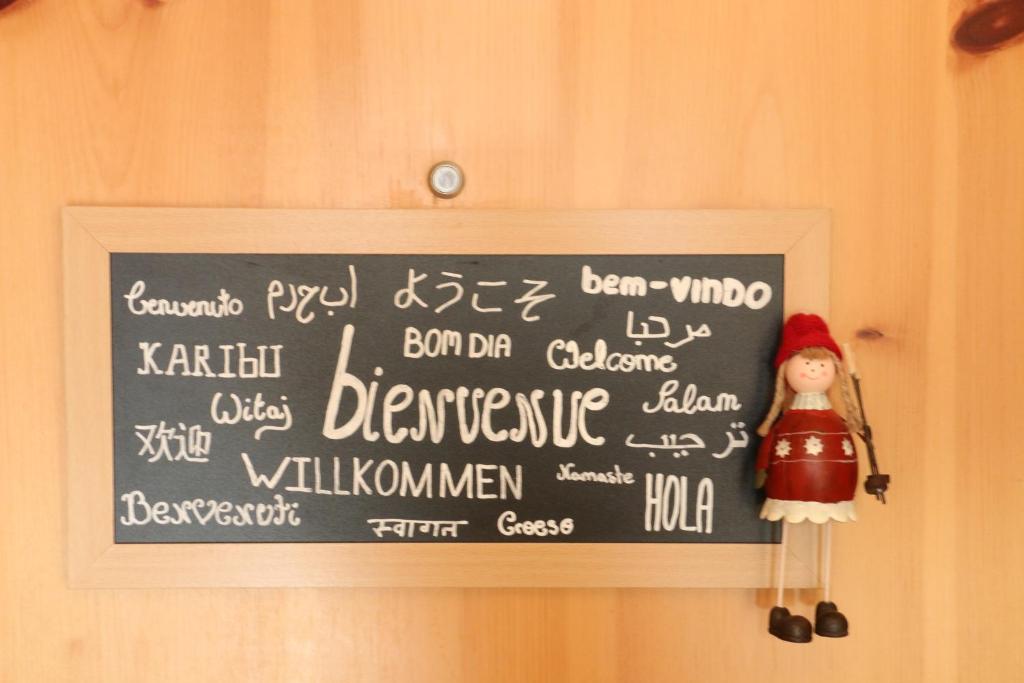 benvenuto
ようこそ
bem-vindo
مرحبا
BOM DIA
Welcome
KARIBU
bienvenue
Witaj
Salam
欢迎
ترحيب
WILLKOMMEN
Namaste
HOLA
Benvenuti
स्वागत
Croeso